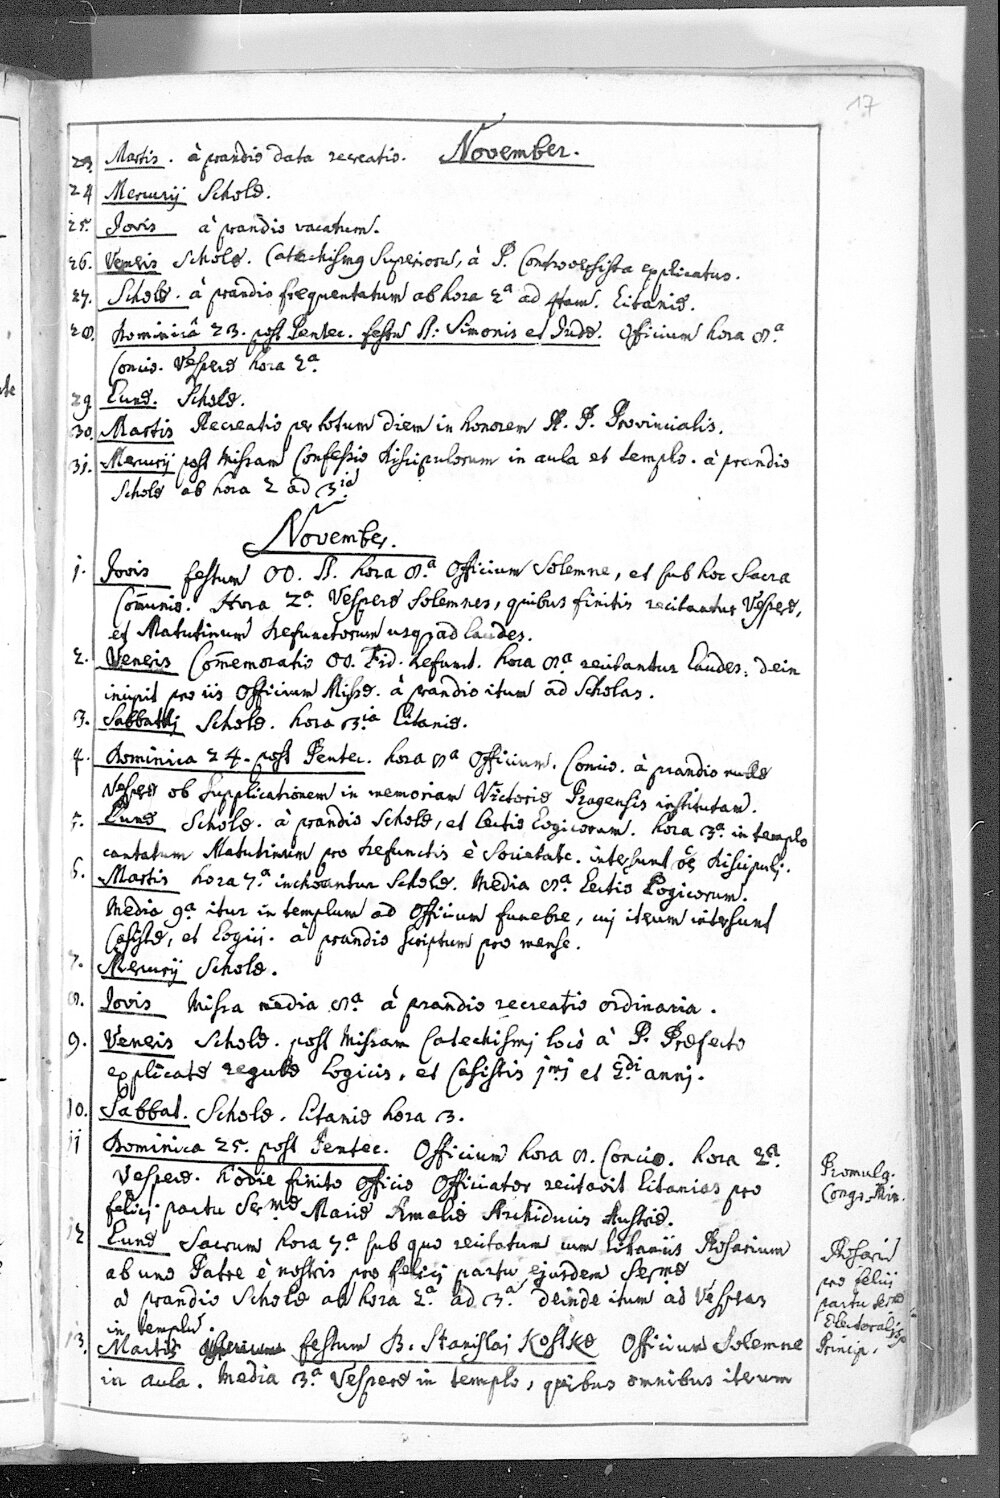 17
November.
23. Martis. à prandio data recreatio.
24 Mercurij Scholæ.
25. Jovis à prandio vacatum.
26. Veneris Scholæ. Catechismus Superiorib, à P. Controversista explicatus.
27. Scholæ. à prandio frequentatum ab hora 2ª ad 4tam. Litaniæ.
28. Dominicâ 23. post Pentec. festu SS: Simonis et Judæ. Officium hora 8.ª
Concio. Vesperæ hora 2ª.
29. Lunæ. Scholæ.
30. Martis Recreatio per totum diem in honorem R. P. Provincialis.
31. Mercurij post Missam Confessio Discipulorum in aula et templo. à prandio
Scholæ ab hora 2 ad 3iã
November.
1. Jovis festum OO. SS. hora 8.ª Officium Solemne, et sub hoc Sacra
Com̃unio. Hora 2ª. Vesperæ Solemnes, quibus finitis recitantur Vesperæ,
et Matutinum defunctorum usq, ad laudes.
2. Veneris Com̃emoratio OO. Fid. defunct. hora 8ª recitantur laudes: dein
incipit pro iis Officium Missæ. à prandio itum ad Scholas.
3. Sabbathj Scholæ. hora 3.ia Litaniæ.
4. Dominica 24. post Pentec. hora 8ª Officium. Concio. à prandio nullæ
Vesperæ ob supplicationem in memoriam Victoriæ Pragensis institutam.
5. Lunæ Scholæ. à prandio Scholæ, et lectio Logicorum. hora 3ª. in templo
cantatum Matutinum pro defunctis è Societate. intersunt oẽs discipulj.
6. Martis hora 7.ª inchoantur Scholæ. Media 8ª. Lectio Logicorum.
Media 9ª itur in templum ad Officium funebre, cuj iterum intersunt
Casistæ, et Logici. à prandio scriptum pro mense.
7. Mercurij Scholæ.
8. Jovis Missa media 8.ª à prandio recreatio ordinaria.
9. Veneris Scholæ. post Missam Catechismj locô à P. Præfecto
explicatæ regulæ Logicis, et Casistis 1mj et 2di annj.
10. Sabbat. Scholæ. Litaniæ hora 3.
11 Dominica 25. post Pentec. Officium hora 8. Concio. hora 2ª.
Vesperæ. hodie finito officio Officiator recitavit litanias pro
felicj partu Sermæ Mariæ Amaliæ Archiducis Austriæ.
12 Lunæ Sacrum hora 7.ª sub quo recitatum cum litaniis Rosarium
ab uno Patre è nostris pro felicj partu ejusdem Sermæ
à prandio Scholæ ab hora 2ª. ad 3ª. deinde itum ad Vesperas
in templu.
13. Martis festum B. Stanislaj Kostkæ Officium Solemne
in aula. Media 3.ª Vesperæ in templo, quibus omnibus iterum
Promulg.
Congr. Min.
Rosariũ
pro felicj
partu Sermæ
Electoralis
Princip.